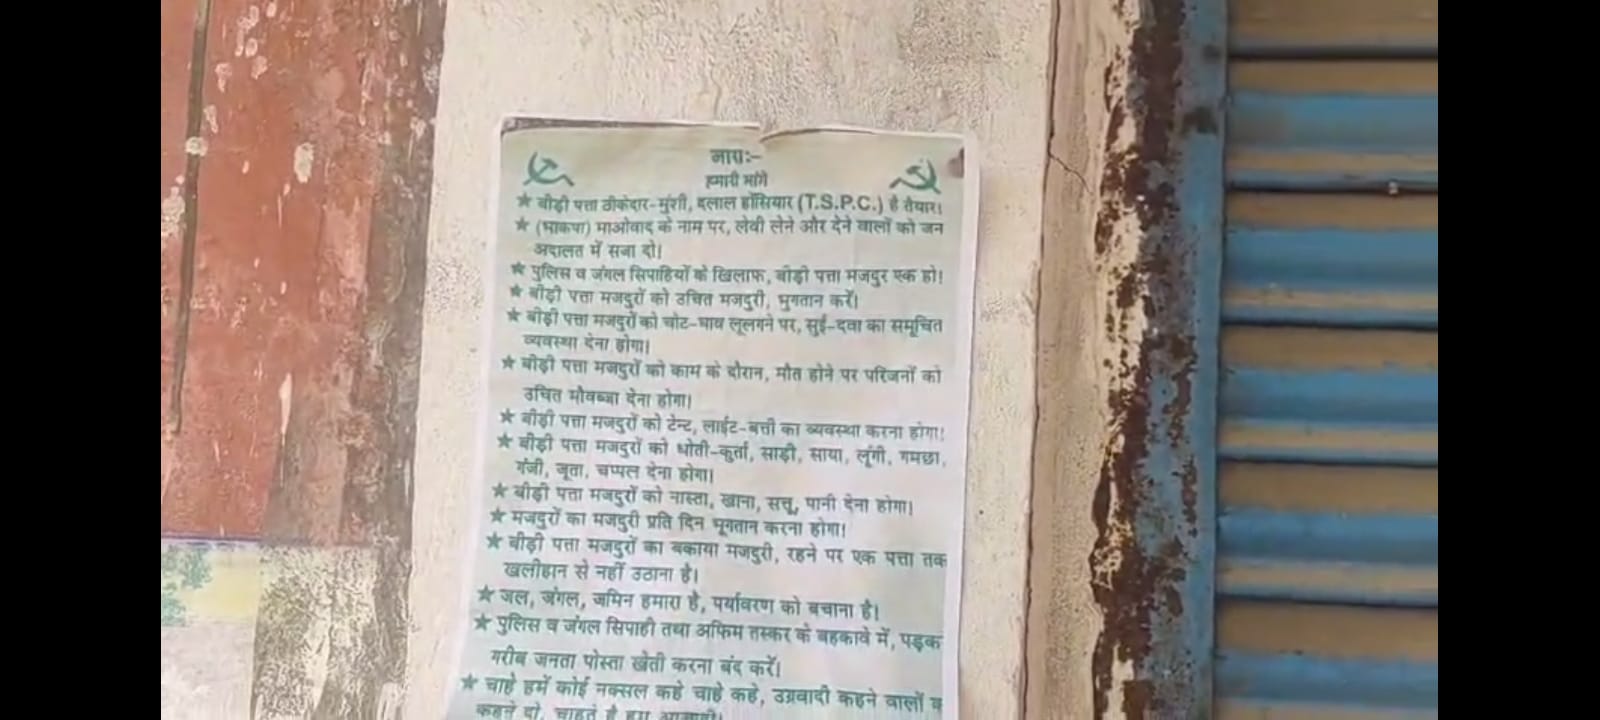 नारा:-
हमारी मांगे
★ बीड़ी पत्ता ठीकेदार-मुंशी, दलाल होंसियार (T.S.P.C.) है तैयार।
★ (भाकपा) माओवाद के नाम पर, लेवी लेने और देने वालों को जन
अदालत में सजा दो।
★ पुलिस व जंगल सिपाहियों के खिलाफ, बीड़ी पत्ता मजदुर एक हो!
★ बीड़ी पत्ता मजदुरों को उचित मजदुरी, भुगतान करें।
★ बीड़ी पत्ता मजदुरों को चोट-घाव लूलगने पर, सुई-दवा का समूचित
व्यवस्था देना होगा।
★ बीड़ी पत्ता मजदुरों को काम के दौरान, मौत होने पर परिजनों को
उचित मौवब्जा देना होगा।
★ बीड़ी पत्ता मजदुरों को टेन्ट, लाईट-बत्ती का व्यवस्था करना होगा!
★ बीड़ी पत्ता मजदुरों को धोती-कुर्ता, साड़ी, साया, लूंगी, गमछा,
गंजी, जूता, चप्पल देना होगा।
★ बीड़ी पत्ता मजदुरों को नास्ता, खाना, सत्तू, पानी देना होगा।
★ मजदुरों का मजदुरी प्रति दिन भूगतान करना होगा!
★ बीड़ी पत्ता मजदुरों का बकाया मजदुरी, रहने पर एक पत्ता तक
खलीहान से नहीं उठाना है।
★ जल, जंगल, जमिन हमारा है, पर्यावरण को बचाना है।
★ पुलिस व जंगल सिपाही तथा अफिम तस्कर के बहकावे में, पड़क
गरीब जनता पोस्ता खेती करना बंद करें।
★ चाहे हमें कोई नक्सल कहे चाहे कहे, उग्रवादी कहने वालों व
कहने दो, चाहते है हम